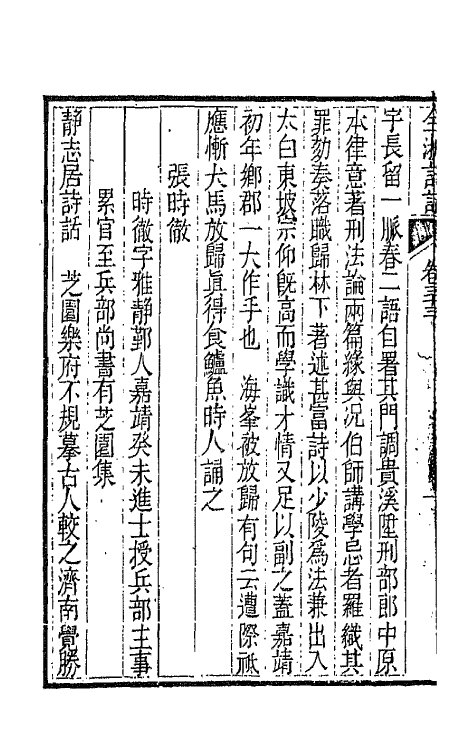 全浙詩話 卷三十三
字長留一脈春二語自署其門調貴溪陞刑部郎中原
本律意著刑法論兩篇緣與况伯師講學忌者羅織其
罪劾奏落職歸林下著述甚富詩以少陵爲法兼出入
太白東坡崇仰旣高而學識才情又足以副之蓋嘉靖
初年鄉郡一大作手也 海峯被放歸有句云遭際祇
應慚犬馬放歸眞得食鱸魚時人誦之
張時徹
時徹字雅靜鄞人嘉靖癸未進士授兵部主事
累官至兵部尚書有芝園集
靜志居詩話 芝園樂府不規摹古人較之濟南覺勝